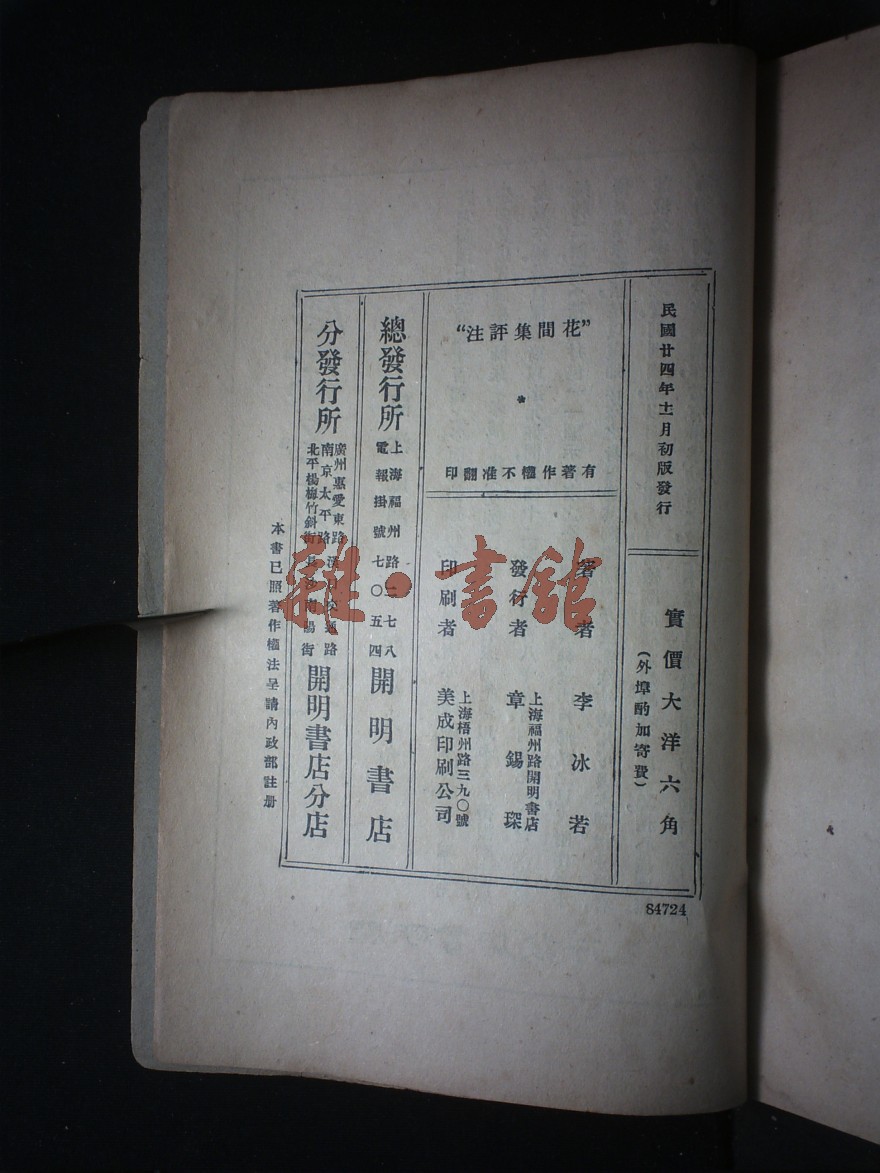 民國廿四年十一月初版發行
實價大洋六角
(外埠酌加寄費)
“花間集評注”
有著作權不准翻印
著者 李冰若
發行者 章錫琛
上海福州路開明書店
印刷者 美成印刷公司
上海梧州路三九〇號
總發行所 上海福州路二七八 開明書店
電報掛號七〇五四
分發行所 廣州惠愛東路 通路 開明書店分店
南京太平路
北平楊梅竹斜街 長沙南陽街
本書已照著作權法呈請內政部註册
84724
雜·書館